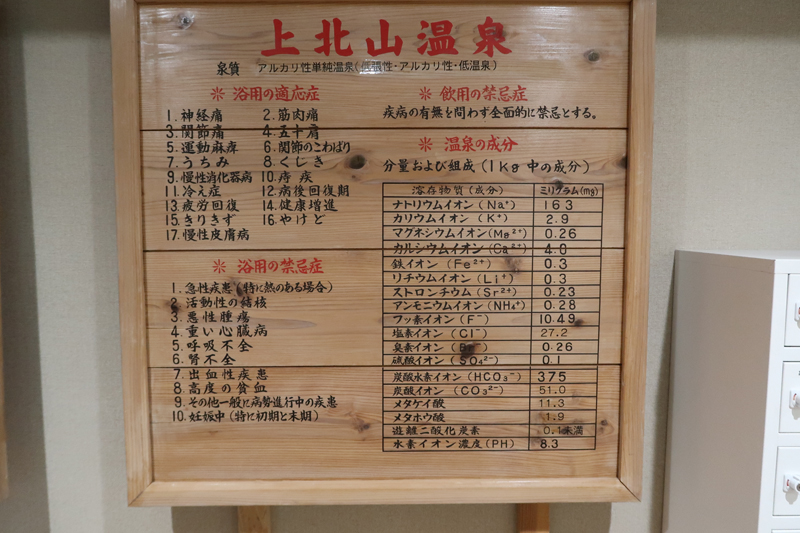 上北山温泉
泉質 アルカリ性単純温泉(低張性・アルカリ性・低温泉)
※ 浴用の適応症
1. 神経痛 2. 筋肉痛
3. 関節痛 4. 五十肩
5. 運動麻痺 6. 関節のこわばり
7. うちみ 8. くじき
9. 慢性消化器病 10. 痔疾
11. 冷え症 12. 病後回復期
13. 疲労回復 14. 健康増進
15. きりきず 16. やけど
17. 慢性皮膚病
※ 浴用の禁忌症
1. 急性疾患(特に熱のある場合)
2. 活動性の結核
3. 悪性腫瘍
4. 重い心臓病
5. 呼吸不全
6. 腎不全
7. 出血性疾患
8. 高度の貧血
9. その他一般に病勢進行中の疾患
10. 妊娠中(特に初期と末期)
※ 飲用の禁忌症
疾病の有無を問わず全面的に禁忌とする。
※ 温泉の成分
分量および組成(1Kg中の成分)
溶存物質(成分) ミリグラム(mg)
ナトリウムイオン(Na⁺) 163
カリウムイオン(K⁺) 2.9
マグネシウムイオン(Mg²⁺) 0.26
カルシウムイオン(Ca²⁺) 4.0
鉄イオン(Fe²⁺) 0.3
リチウムイオン(Li⁺) 0.3
ストロンチウム(Sr²⁺) 0.23
アンモニウムイオン(NH₄⁺) 0.28
フッ素イオン(F⁻) 10.49
塩素イオン(Cl⁻) 27.2
臭素イオン(Br⁻) 0.26
硫酸イオン(SO₄²⁻) 0.1
炭酸水素イオン(HCO₃⁻) 375
炭酸イオン(CO₃²⁻) 51.0
メタケイ酸 11.3
メタホウ酸 1.9
遊離二酸化炭素 0.1未満
水素イオン濃度(PH) 8.3